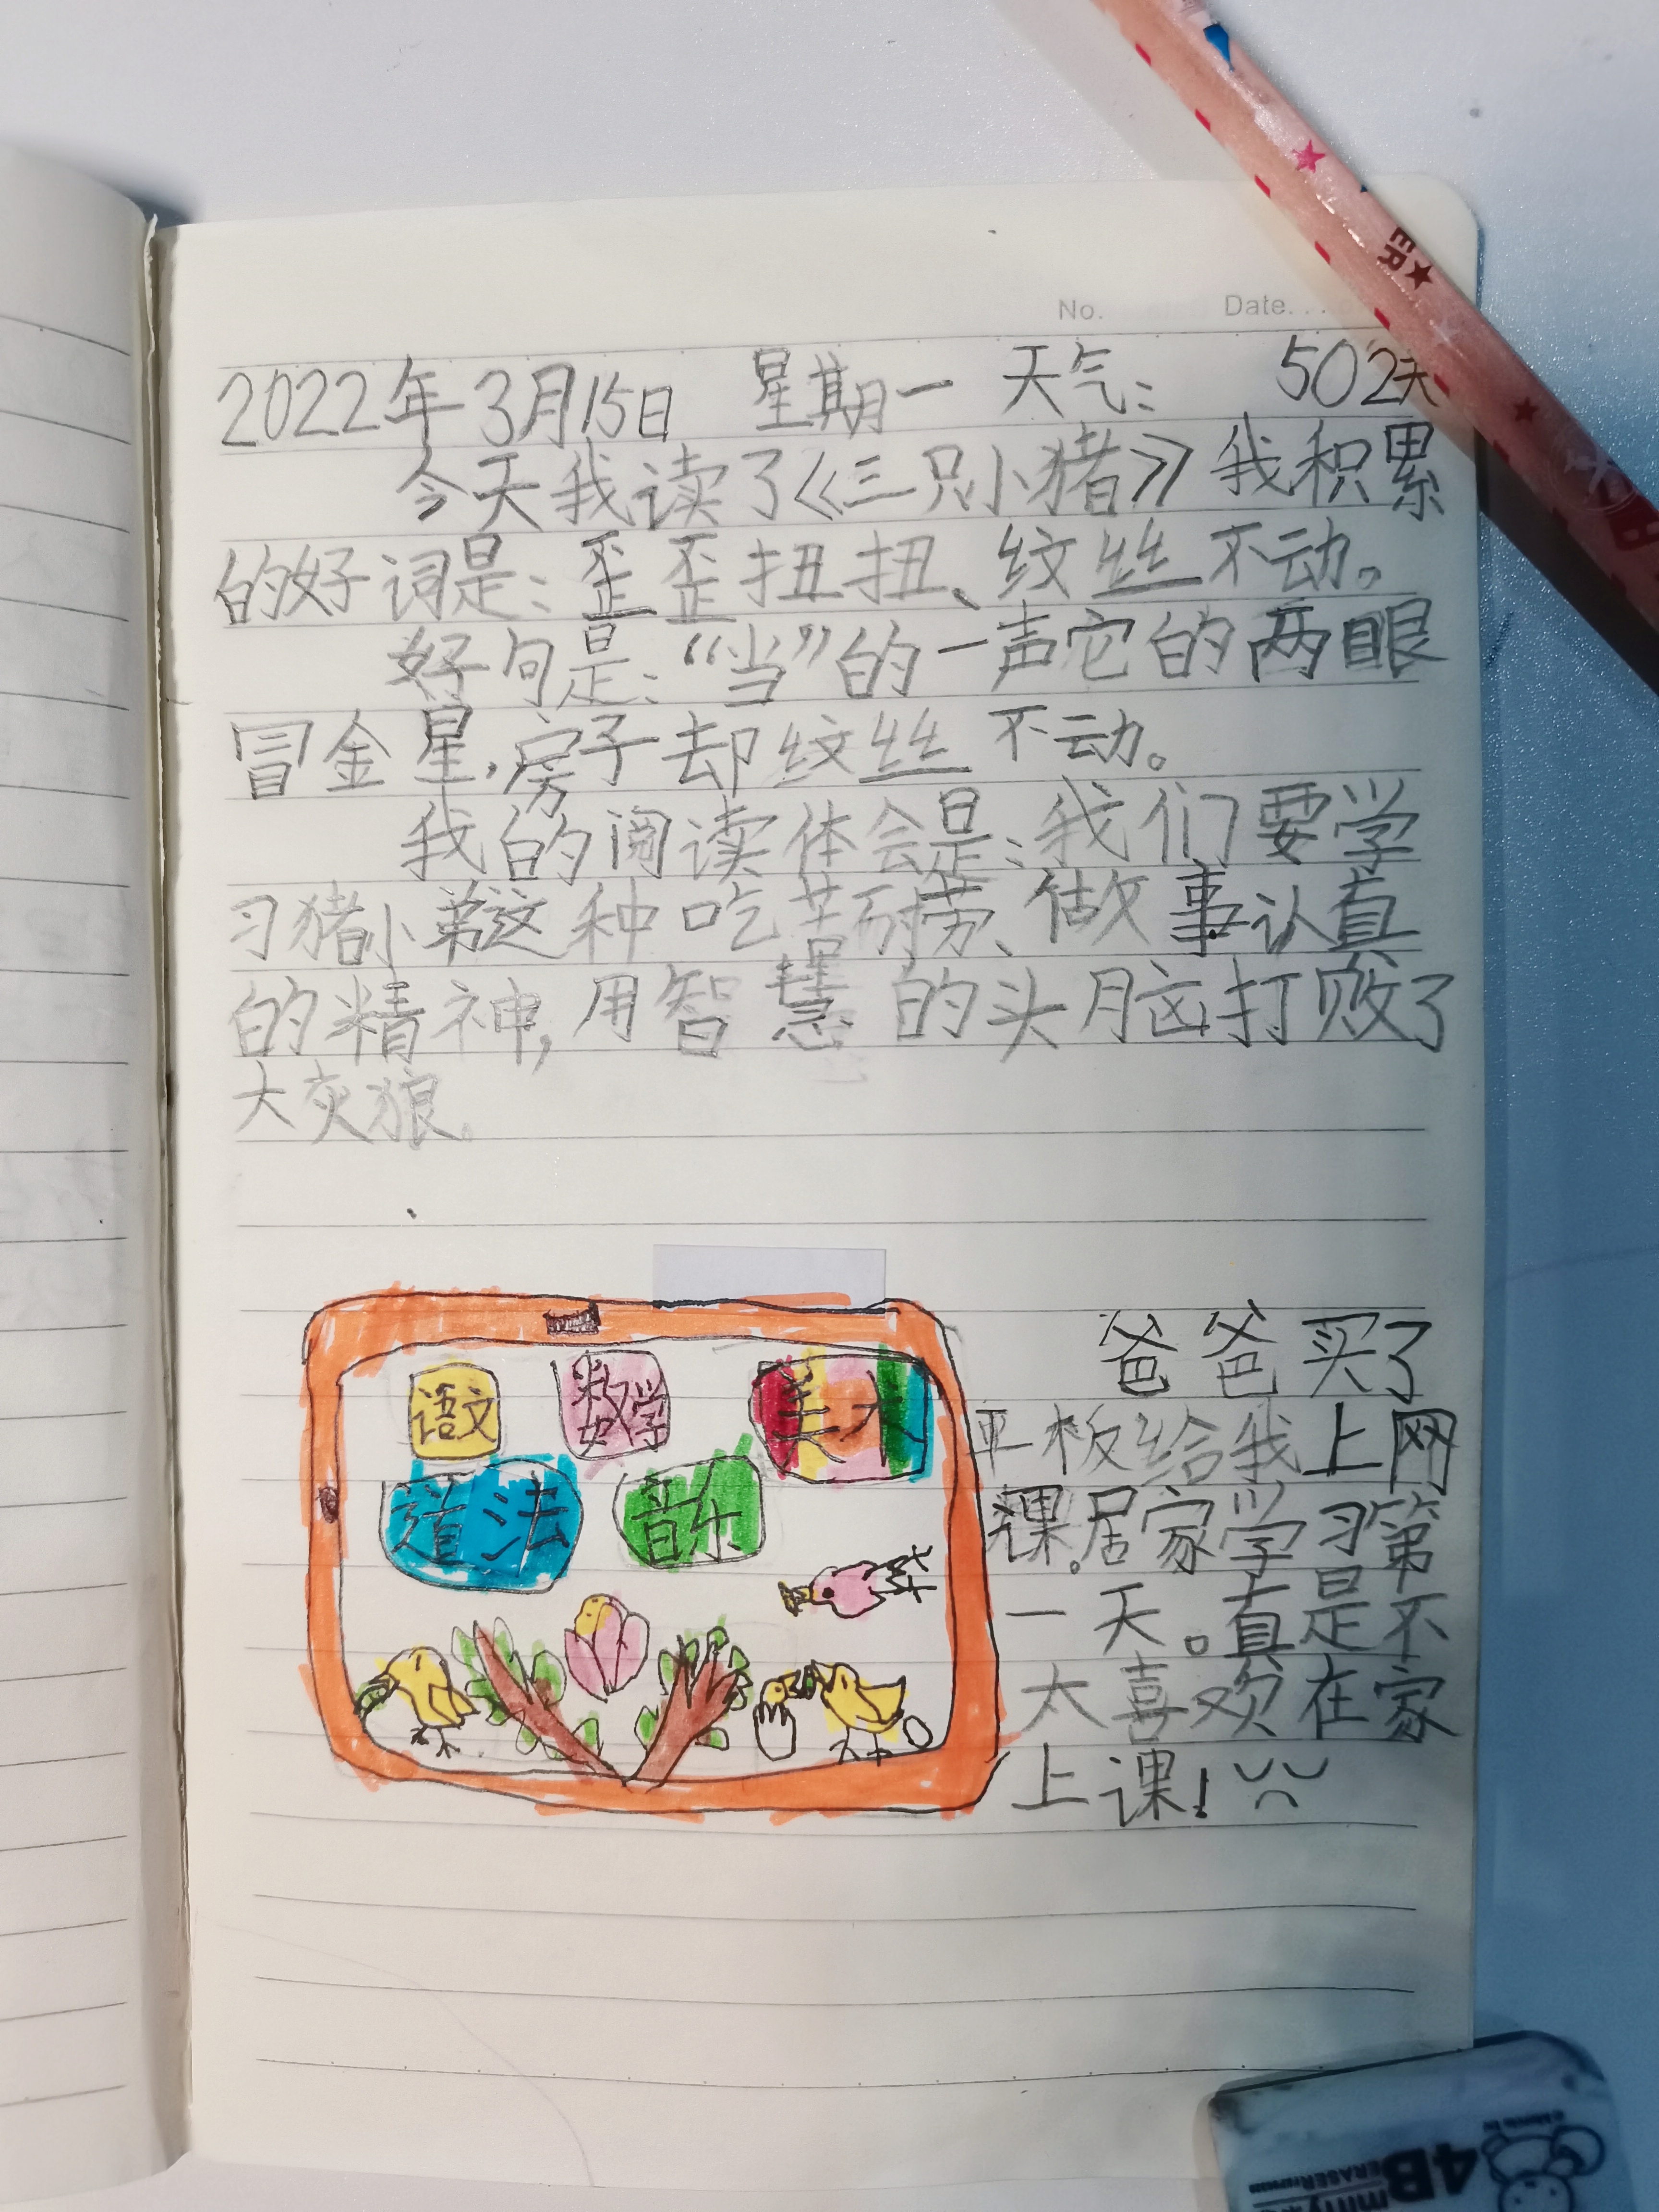 No. Date...
2022年3月15日 星期一 天气: 502天
今天我读了《三只小猪》我积累
的好词是:歪歪扭扭、纹丝不动。
好句是:“当”的一声它的两眼
冒金星,房子却纹丝不动。
我的阅读体会是:我们要学
习猪小弟这种吃苦耐劳、做事认真
的精神,用智慧的头脑打败了
大灰狼。
语文 数学 美术
道法 音乐
爸爸买了
平板给我上网
课。居家学习第
一天。真是不
太喜欢在家
上课!
ER
4B
ERASER